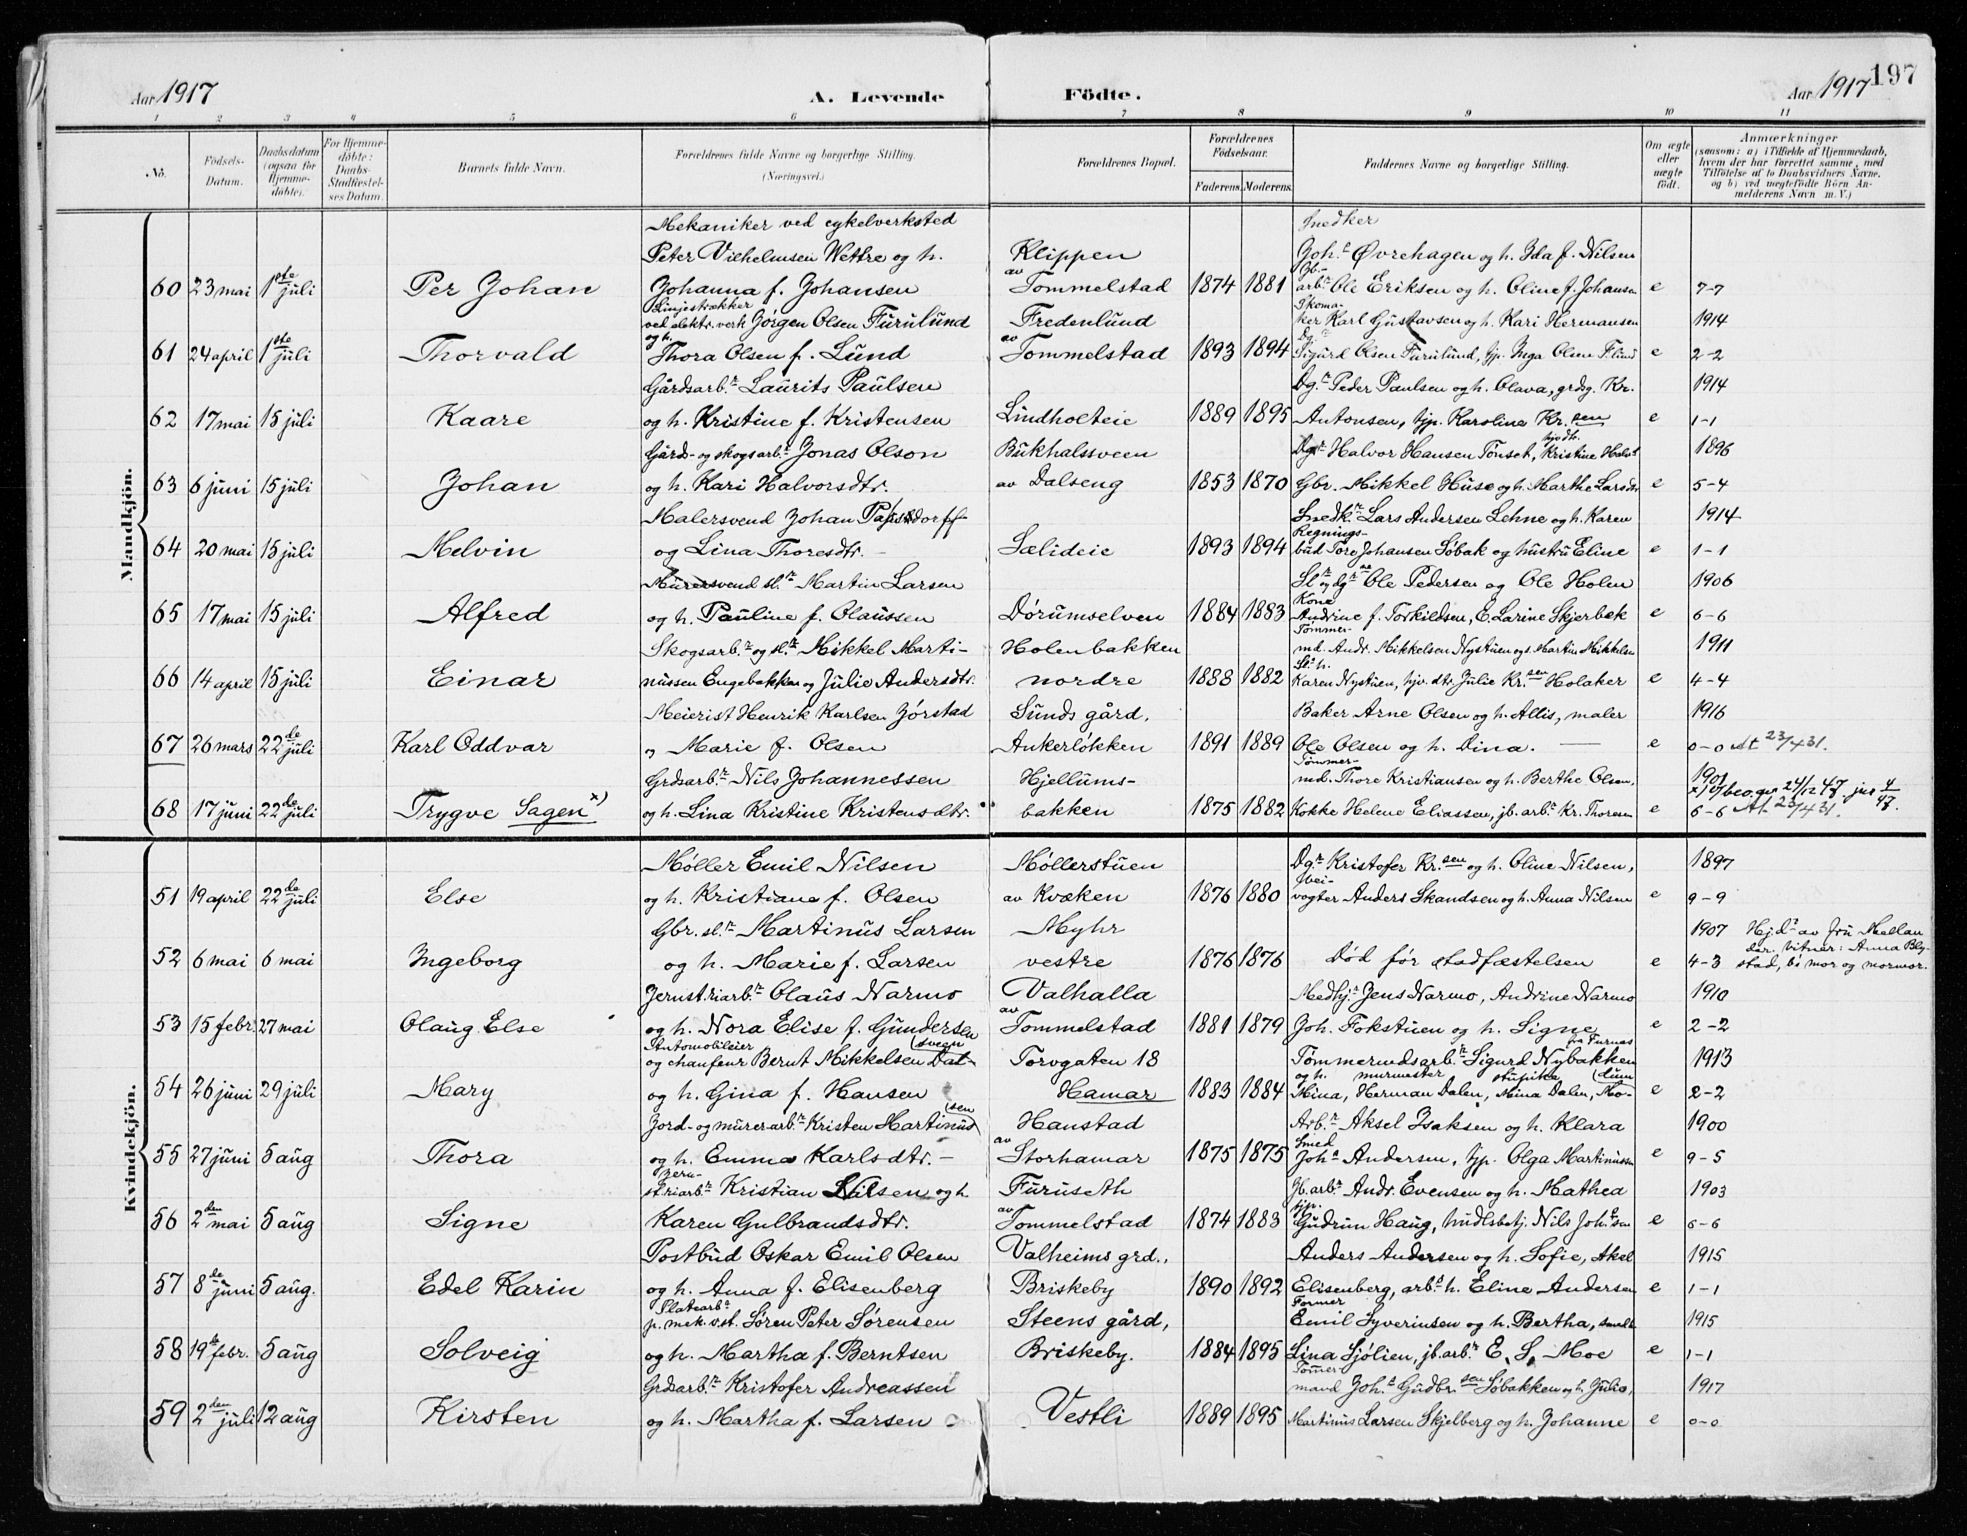 Aar 1917 A. Levende Födte. Aar 1917 197
1 2 3 4 5 6 7 8 9 10 11
No. Födsels-Datum. Daabsdatum (ogsaa for Hjemme-döbte). For Hjemme-döbte: Daabs-Stadfæstel-ses Datum. Barnets fulde Navn. Forældrenes fulde Navne og borgerlige Stilling. (Næringsvei.) Forældrenes Bopæl. Forældrenes Födselsaar. Faderens. Moderens. Faddernes Navne og borgerlige Stilling. Om ægte eller uægte födt. Anmærkninger (saasom: a) i Tilfælde af Hjemmedaab, hvem der har forrettet samme, med Tilföielse af to Daabsvidners Navne, og b) ved uægtefödte Börn Anmelderens Navn m. V.)
Mandkjön.
Mekaniker ved cykelverksted Snedker
Peter Vilhelmsen Wettre og h. Klippen Joh.s Øvrehagen og h. Ida f. Nilsen
60 23 mai 1ste juli Per Johan Johanna f. Johansen av Tommelstad 1874 1881 arb.r Ole Eriksen og h. Oline f. Johansen e 7-7
Linjestrækker ved elektr. verk Jørgen Olsen Furulund Fredenlund Skomaker Karl Gustavsen og h. Kari Hermansen 1914
61 24 april 1ste juli Thorvald og h. Thora Olsen f. Lund av Tommelstad 1893 1894 Dg. Sigurd Olsen Furulund, tjp. Inga Olsen F.lund e 2-2
Gårdsarb.r Laurits Paulsen Dg.r Peder Paulsen og h. Olava, grdsg. Kr. 1914
62 17 mai 15 juli Kaare og h. Kristine f. Kristensen Lindholteie 1889 1895 Antonsen, tjp. Karoline Kr.sen e 1-1
Gård- og skogsarb.r Jonas Olson Bukhalssveen Dgr Halvor Hansen Tønset, hjvdtr. Kristine 1896
63 6 juni 15 juli Johan og h. Kari Halvorsdtr. av Dalseng 1853 1870 Gbr. Mikkel Huse og h. Marthe Larsdtr e 5-4
Malersvend Johan Passdorff Snedk.r Lars Andersen Lehne og h. Karen 1914
64 20 mai 15 juli Melvin og Lina Thoresdtr. Sælideie 1893 1894 Regningsbud Tore Johansen Søbak og hustru Eline e 1-1
Murersvend sl.r Martin Larsen Sl.r og dg.ne Ole Pedersen og Ole Holen 1906
65 17 mai 15 juli Alfred og h. Pauline f. Olaussen Dørumselven 1884 1883 Kone Andrine f. Torkildsen, E. Larine Skjerbæk e 6-6
Skogsarb.r og sl.r Mikkel Marti- Holenbakken Tømmermd. Andr. Mikkelsen Nystuen og s. Martin Mikkelsen 1911
66 14 april 15 juli Einar nussen Engebakken og Julie Andersdtr. nordre 1888 1882 Karen Nystuen, hjv. dtr. Julie Kr.sen Holaker e 4-4
Meierist Henrik Karlsen Jørstad Lunds gård, Baker Arne Olsen og h. Allis, maler 1916
67 26 mars 22de juli Karl Oddvar „ Marie f. Olsen Ankerløkken 1891 1889 Ole Olsen og h. Dina. e 0-0 At 23/4 31.
Grdsarb.r Nils Johannessen Hjellums- Tømmermd. Thore Kristiansen og h. Berthe Olsen, 1901
68 17 juni 22de juli Trygve Sagen x) og h. Lina Kristine Kristensdtr. bakken 1875 1882 Kokke Helene Eliassen, jb. arb.r Kr. Thoresen e 6-6 At 23/4 31.
Kvindekjön.
Møller Emil Nilsen Møllerstuen Dg.r Kristofer Kr.sen og h. Oline Nilsen, 1897
51 19 april 22de juli Else og h. Kristiane f. Olsen av Kvæken 1876 1880 vogter Anders Skandsen og h. Anna Nilsen e 9-9
Gbr. sl.r Martinus Larsen Myhr 1907 Hjd.t av Jru Mellan
52 6 mai 6 mai Ingeborg og h. Marie f. Larsen vestre 1876 1876 Død før stadfæstelsen e 4-3 der. Vitner: Anna Bly- stad, bi mor og mormor.
Jernstriarb.r Olaus Narmo Valhalla Medhj.r Jens Narmo, Andrine Narmo 1910
53 15 febr. 27 mai Olaug Else og h. Nora Elise f. Gundersen av Tommelstad 1881 1879 Joh. Fokstuen og h. Signe fra Furnes e 2-2
Automobileier og chaufeur Bernt Mikkelsen Dal- (sveen Torvgaten 18 Tømmermdsarb.r Sigurd Nybakken 1913
54 26 juni 29 juli Mary og h. Gina f. Hansen Hamar 1883 1884 og h. Mina, murmester Herman Dalen, stupike Mina Dalen, Mo- (dum e 2-2
Jord- og murerarb.r Kristen Martinus (sen Hanstad Arb.r Aksel Isaksen og h. Klara 1900
55 27 juni 5 aug Thora og h. Emma Karlsdtr. av Storhamar 1875 1875 Smed Joh.s Andersen, tjp. Olga Martinussen e 9-5
Jernstriarb.r Kristian Nilsen og h. Furuseth Jb. arb.r Andr. Evensen og h. Mathea 1903
56 2den mai 5 aug Signe Karen Gulbrandsdtr. av Tommelstad 1874 1883 tjp. Gudrun Haug, hndlsbetj. Nils Joh.sen e 6-6
Postbud Oskar Emil Olsen Valheims grd., Anders Andersen og h. Sofie, Aksel 1915
57 8de juni 5 aug. Edel Karin og h. Anna f. Elisenberg Briskeby 1890 1892 Elisenberg, arb.s h. Eline Andersen e 1-1
Platearb.r p. mek. v.st. Søren Peter Sørensen Steens gård, Former Emil Syverinsen og h. Bertha, 1915
58 19 febr. 5 aug Solveig og h. Martha f. Berntsen Briskeby. 1884 1895 Lina Sjølien, jb. arb.r E. S. Moe e 1-1
Grdsarb.r Kristofer Andreassen Tømmermand Joh.s Gudbr.sen Søbakken og h. Julie, 1917
59 2den juli 12 aug Kirsten og h. Martha f. Larsen Vestli 1889 1895 Martinus Larsen Skjelberg og h. Johanne e 0-0